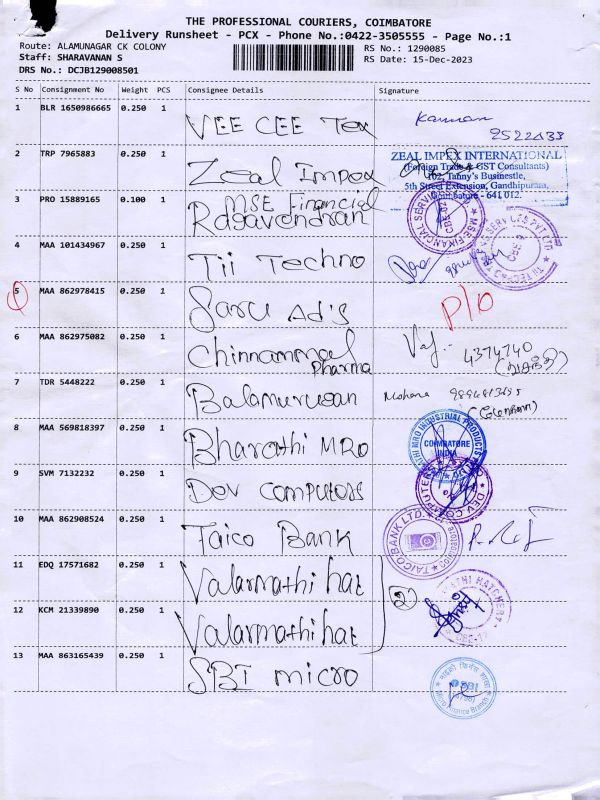 THE PROFESSIONAL COURIERS, COIMBATORE
Delivery Runsheet - PCX - Phone No.:0422-3505555 - Page No.:1
Route: ALAMUNAGAR CK COLONY RS No.: 1290085
Staff: SHARAVANAN S RS Date: 15-Dec-2023
DRS No.: DCJB129008501
S No Consignment No Weight PCS Consignee Details Signature
1 BLR 1650986665 0.250 1 VEE CEE Tex Kannan
2 TRP 7965883 0.250 1 Zeal Impex
ZEAL IMPEX INTERNATIONAL
(Foreign Trade & GST Consultants)
102, Tanny's Businestle,
5th Street Extension, Gandhipuram,
Coimbatore - 641 012.
3 PRO 15889165 0.100 1 MSE Financial
Ragavendran
MSE FINANCIAL SERVICES
4 MAA 101434967 0.250 1 Tii Techno
5 MAA 862978415 0.250 1 Saru Ad's P/O
6 MAA 862975082 0.250 1 Chinnammal
Pharma
4374740
7 TDR 5448222 0.250 1 Balamurugan Mohana
8 MAA 569818397 0.250 1 Bharathi MRO
BHARATHI MRO INDUSTRIAL PRODUCTS
COIMBATORE
INDIA
9 SVM 7132232 0.250 1 Dev Computers
DEV COMPUTERS
10 MAA 862908524 0.250 1 Taico Bank
TAICO BANK LTD.
11 EDQ 17571682 0.250 1 Valarmathi hat
2
12 KCM 21339890 0.250 1 Valarmathi hat
HATCHERY
13 MAA 863165439 0.250 1 SBI micro
SBI